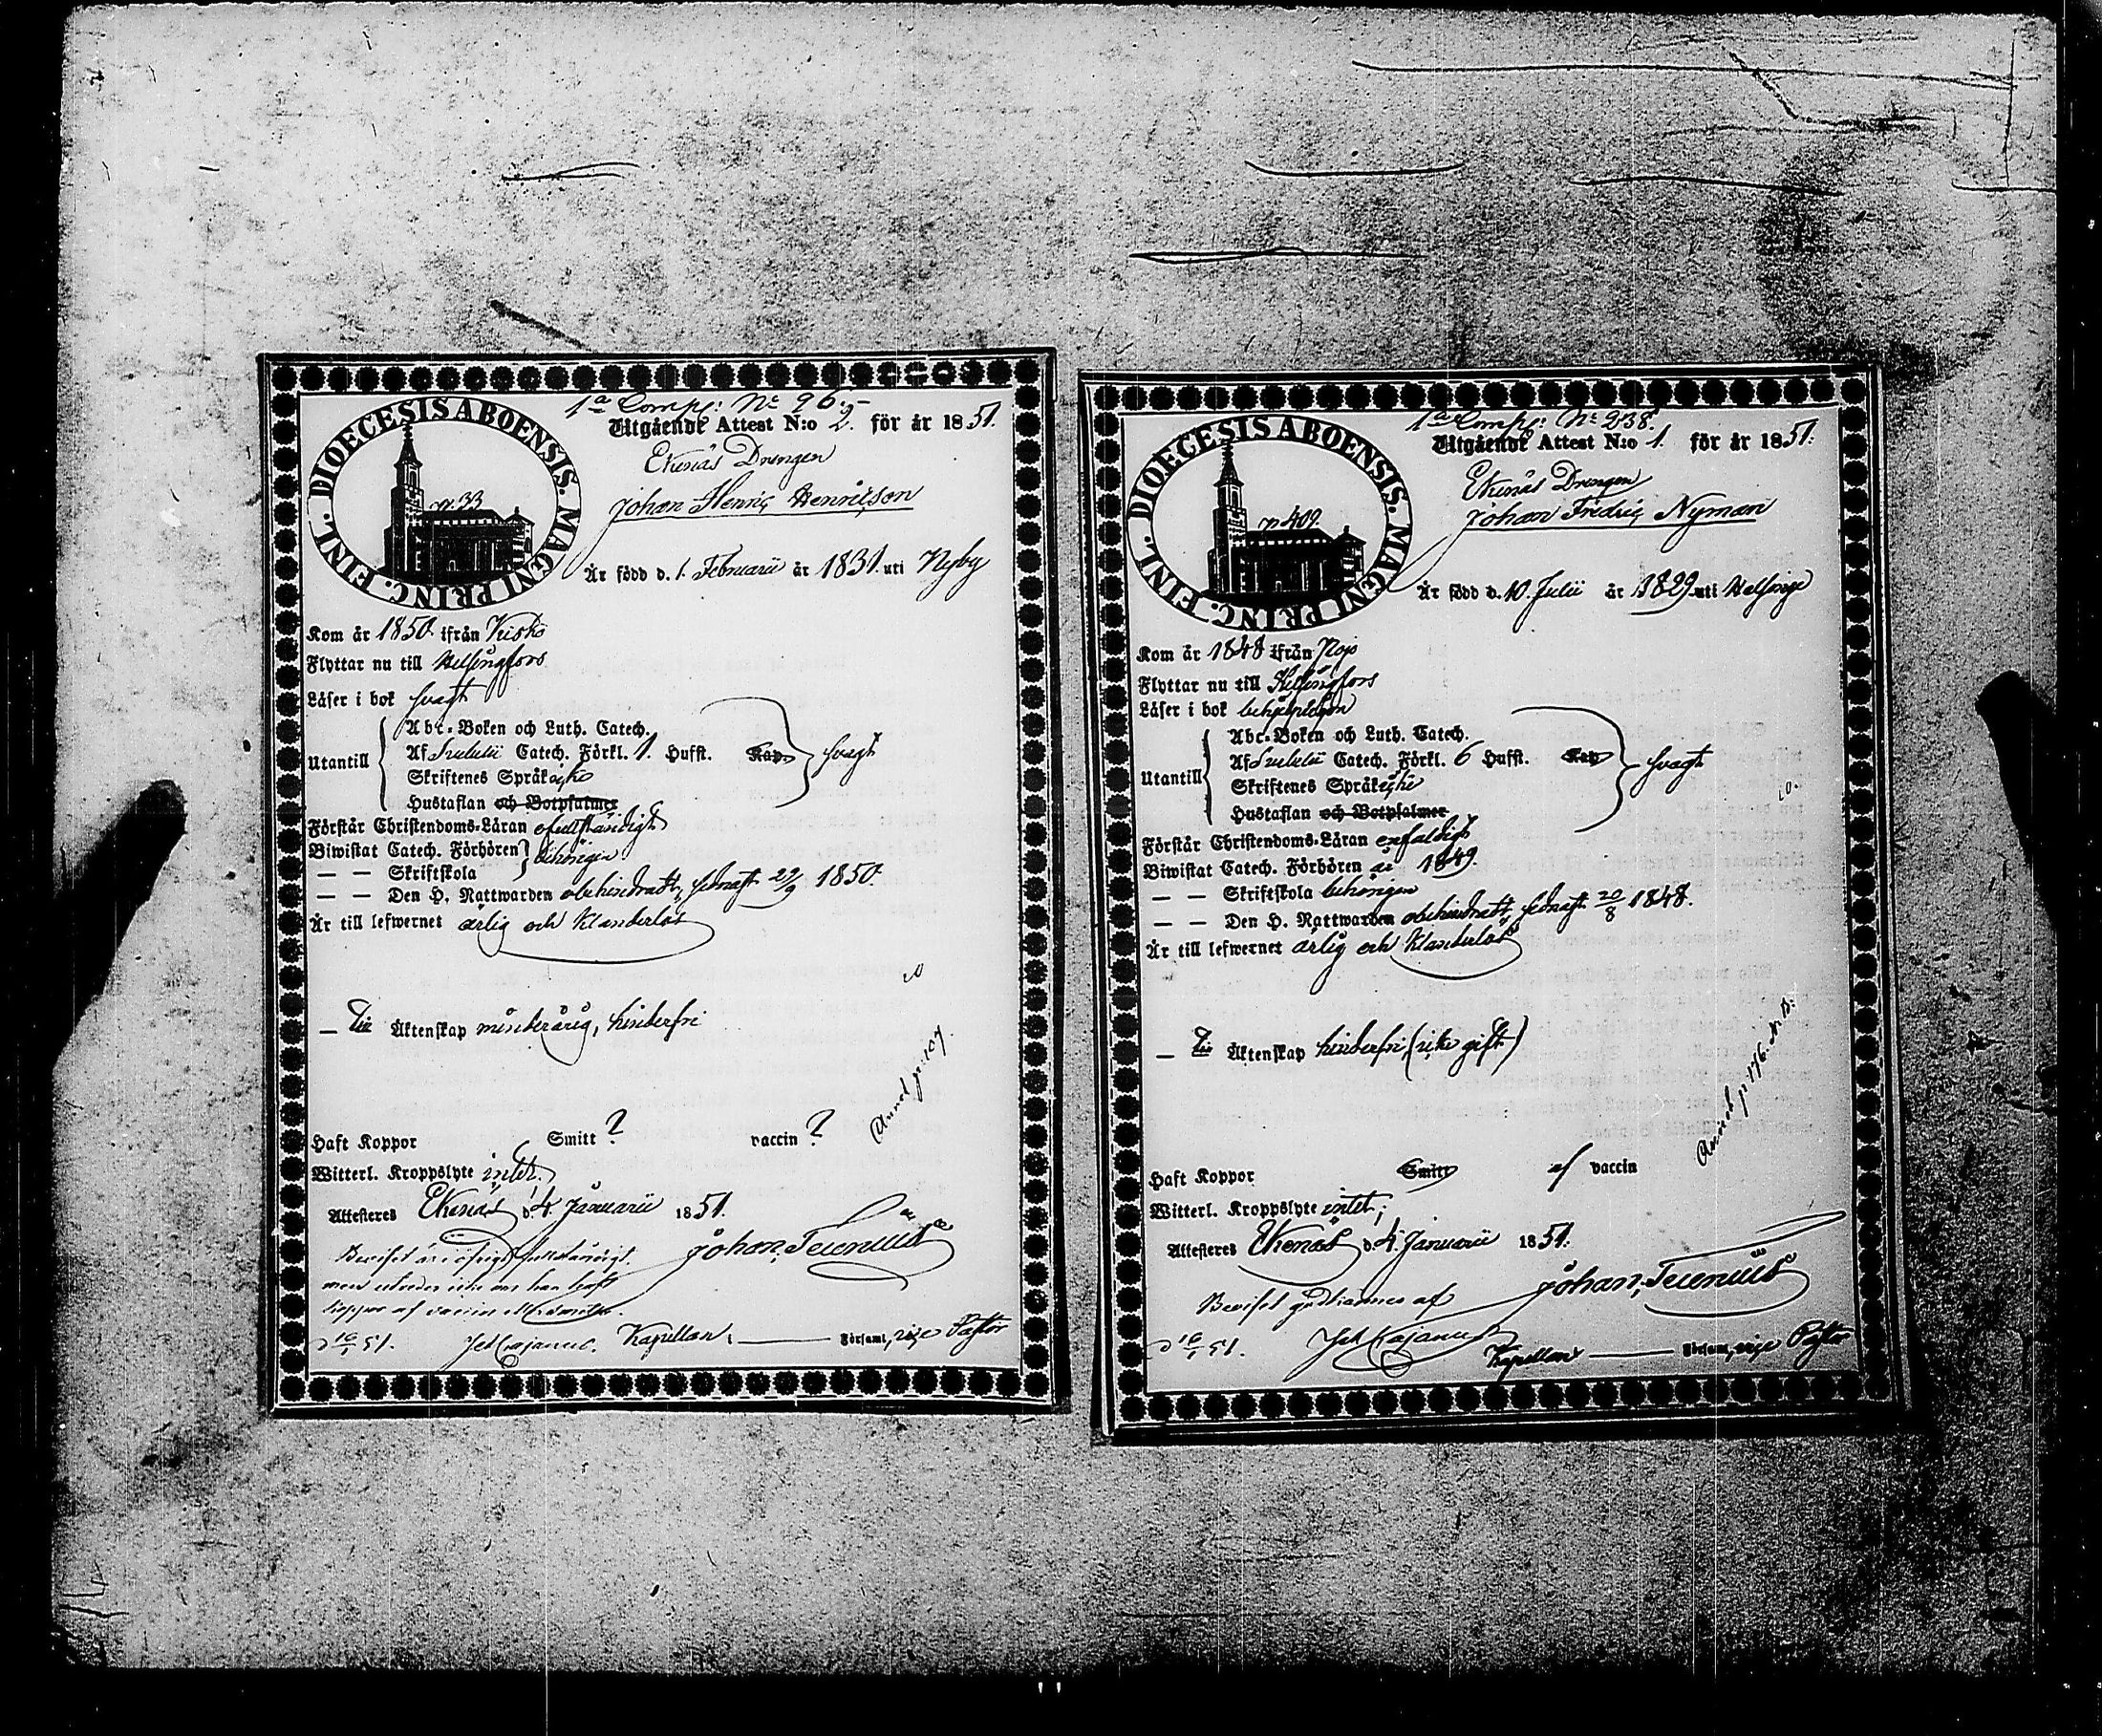 1a Comp: No 96.
Utgående Attest N:o 2. för år 1851.
DIOECESIS ABOENSIS. MAGNI PRINC. FINL.
p. 33
Ekenäs Drengen
Johan Henric Henricson
Är född d. 1. Februarii år 1831. uti Nyby
Kom år 1850. ifrån Kisko
Flyttar nu till Helsingfors
Läser i bok svagt
Utantill
Abc-Boken och Luth. Catech.
Af Svebelii Catech. Förkl. 1. Hufst. Kap. svagt
Skriftenes Språk icke
Hustaflan och Botpsalmer
Förstår Christendoms-Läran ofullständigt
Biwistat Catech. Förhören behörigen
— — Skriftskola
— — Den H. Nattwarden obehindradt, sednast 29/9 1850.
Är till lefwernet ärlig och klanderlös
— Till Äktenskap minderårig, hinderfri
Haft Koppor Smitt ? vaccin ?
Witterl. Kroppslyte intet.
Annot. p. 107.
Attesteres Ekenäs d. 4 Januarii 1851.
Johan Tecnelius
Beviset är i öfrigt fullständigt.
men utvisar icke om han haft
koppor af vaccin
d 16/1 51. Kapellan, Församl, vice Pastor
1a Comp: No 238.
Utgående Attest N:o 1. för år 1851.
DIOECESIS ABOENSIS. MAGNI PRINC. FINL.
p 409.
Ekenäs Drengen
Johan Fredric Nyman
Är född d. 10. Julii år 1829 uti Helsinge
Kom år 1848 ifrån Pojo
Flyttar nu till Helsingfors
Läser i bok behjelpligen
Utantill
Abc-Boken och Luth. Catech.
Af Svebelii Catech. Förkl. 6 Hufst. Kap svagt
Skriftenes Språk icke
Hustaflan och Botpsalmer
Förstår Christendoms-Läran enfaldigt
Biwistat Catech. Förhören år 1849.
— — Skriftskola behörigen
— — Den H. Nattwarden obehindradt, sednast 20/8 1848.
Är till lefwernet ärlig och klanderlös
— Till Äktenskap hinderfri (icke gift)
Haft Koppor Smitt af vaccin
Witterl. Kroppslyte intet;
Annot. p. 176.
Attesteres Ekenäs d. 4. Januarii 1851.
Beviset godkännes af
d 16/1 51. Kapellan Församl, vice Pastor